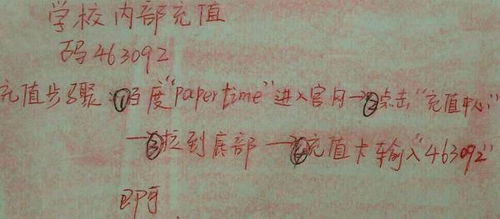 学校内部充值
码463092
充值步骤:①百度"papertime"进入官网→②点击"充值中心"
→③拉到底部→④充值卡输入"463092"
即可